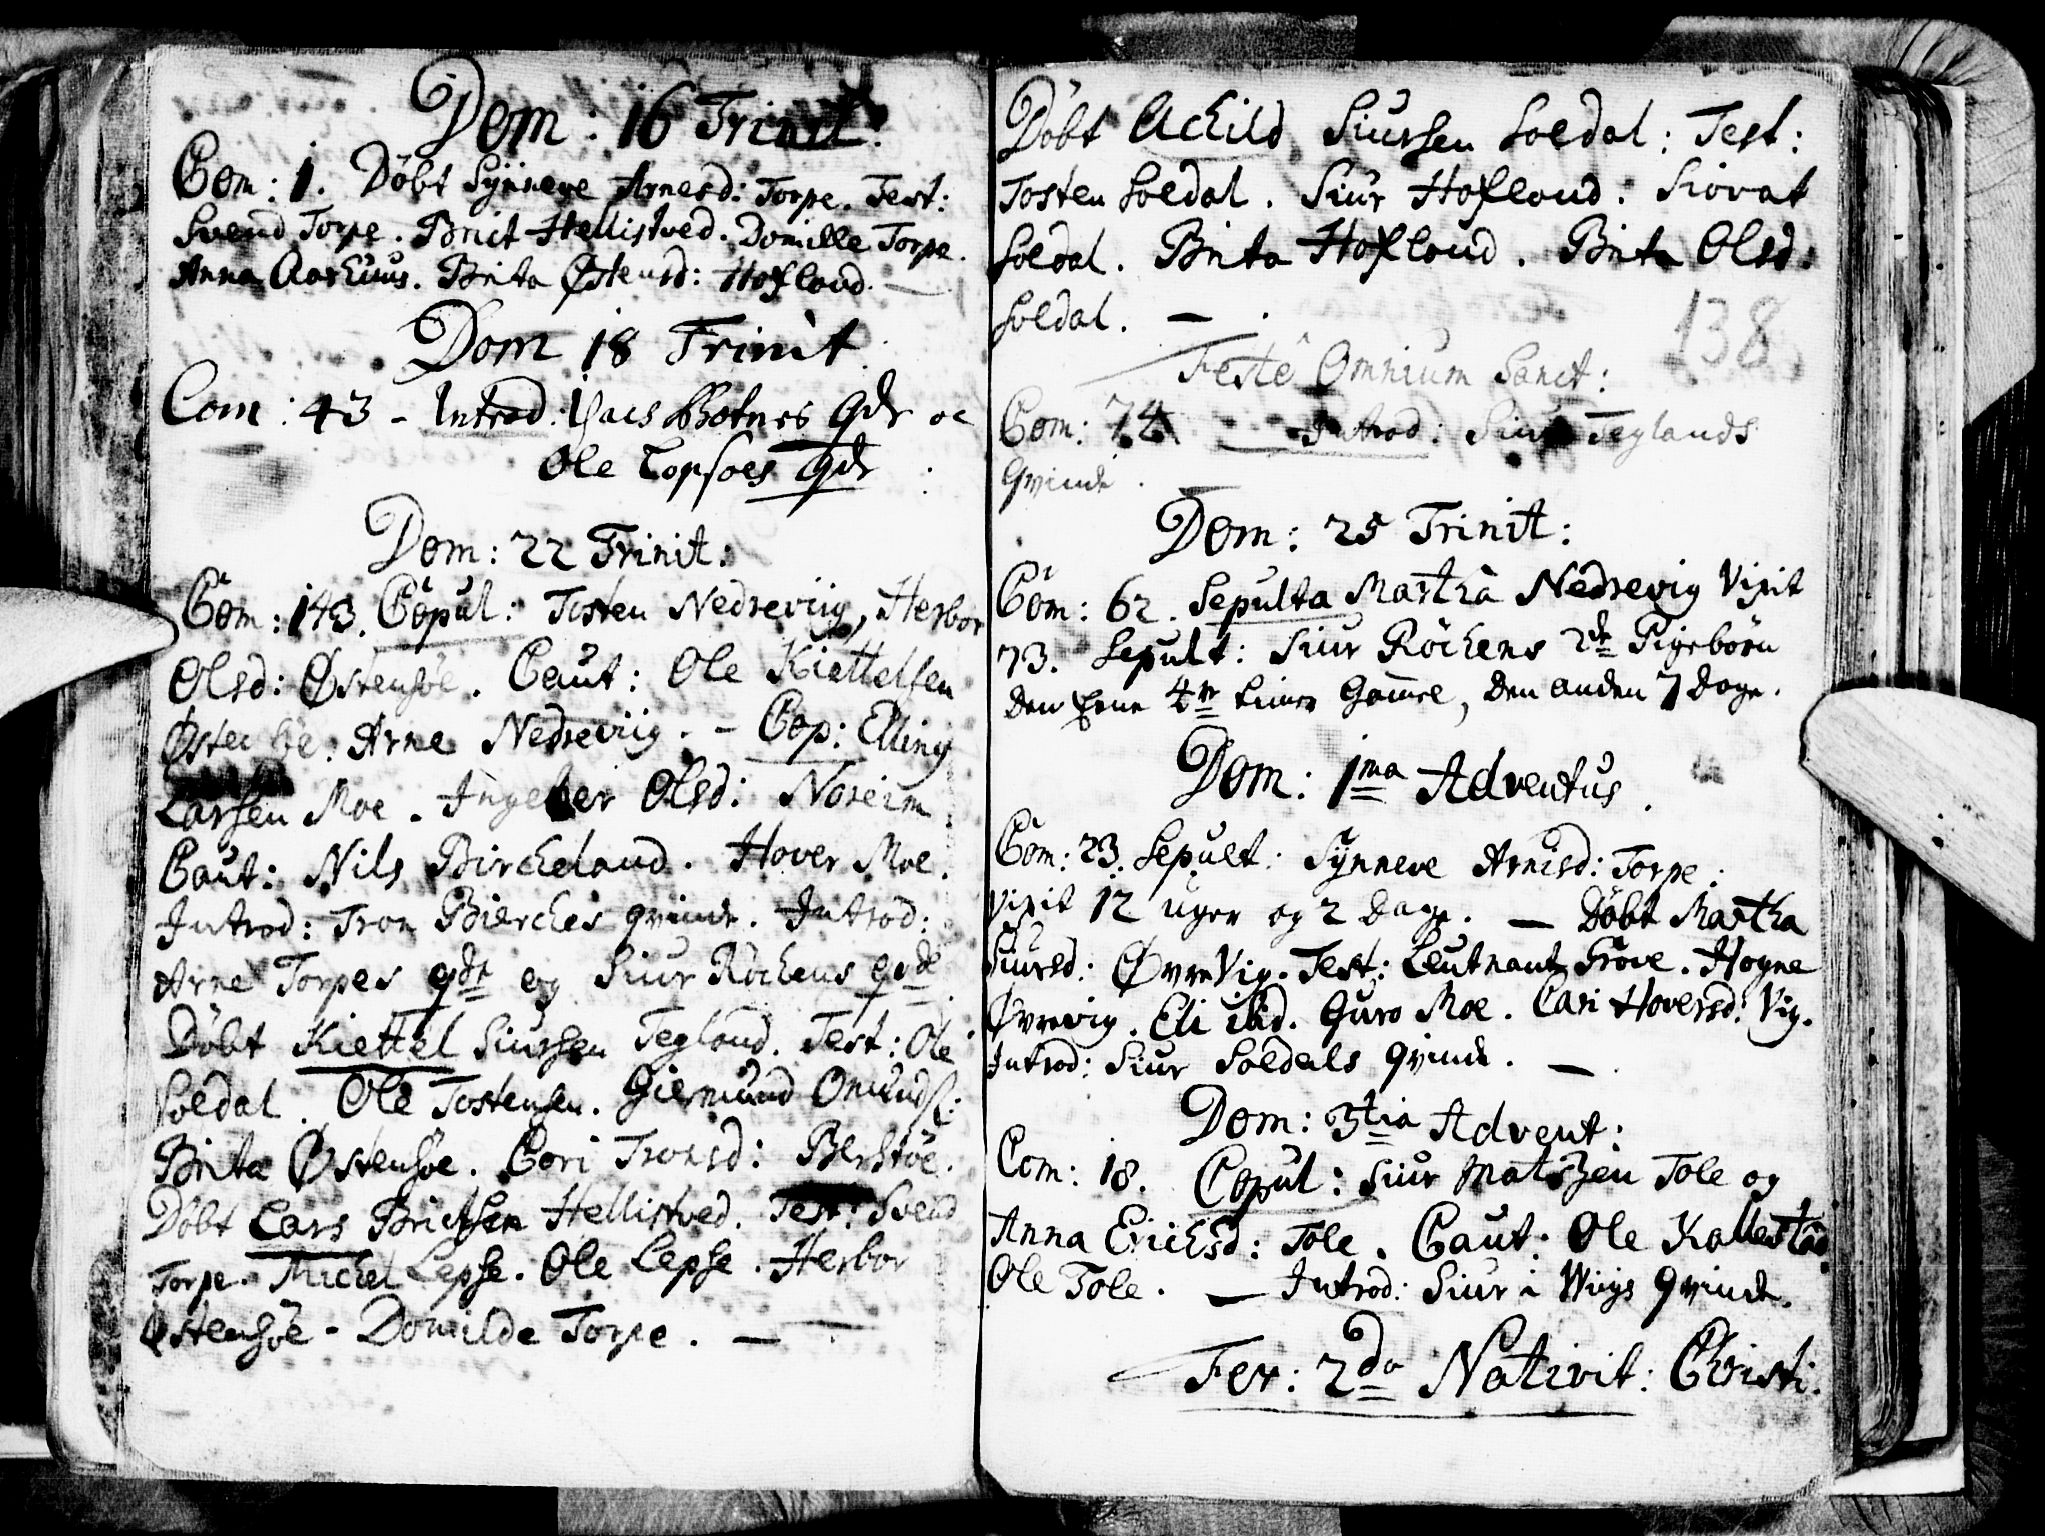 Dom: 16 Trinit:
Com: 1. Döbt Synneve Arnesd: Torpe. Test:
Svend Torpe. Brict Hellistved. Domille Torpe.
Anna Aarhuus. Brita Østensd: Hofland. —
Dom 18 Trinit
Com: 43 - Introd: Botnes qdr oc
Ole Lopsoes qdr
Dom: 22 Trinit:
Com: 143. Copul: Tosten Nedreviig, Herbor
Olsd: Østensöe. Caut: Ole Kiettelsen
Arne Nedreviig. - Cop: Elling
Larssen Moe. Ingeber Olsd: Noreim.
Caut: Nils Bircheland. Hover Moe.
Introd: Tron Bierches qvinde. Introd:
Arne Torpes qde og Siur Röchens qde
Döbt Kiettel Siurssen Tegland. Test: Ole
Soedal. Ole Tostensen. Giermund Omunds:
Brita Østensöe. Cari Tronsd: Berstöe.
Döbt Lars Brictsen Hellistved. Test: Svend
Torpe. Michel Lepse. Ole Lepse. Herbor
Østensöe - Domilde Torpe. —
Döbt Achild Siurssen Soedal: Test:
Tosten Soedal. Siur Hofland. Siovat
Soedal. Brita Hofland. Brita Olsd:
Soedal. —
138
Festo Omnium Sanct:
Com: 74 — Introd: Siur Teglands
qvinde.
Dom: 25 Trinit:
Com: 62. Sepulta Martha Nedrevig Vixit
73. Sepult: Siur Röchens 2de Pigebörn
den Ene 4re timer Gamel, den anden 7 dage.
Dom: 1ma Adventus.
Com: 23. Sepult: Synneve Arnesd: Torpe.
vixit 12 uger og 2 dage. — Döbt Martha
Siursd: Øvrevig. Test: Leutnant Frove. Hogne
Øvrevig. Eli ibid. Guro Moe. Cari Hoversd: Vig.
Introd: Siur Soedals qvinde. —
Dom: 3tia Advent:
Com: 18. Copul: Siur Matszen Tole og
Anna Erichsd: Tole. Caut: Ole Kallestad
Ole Tole. — Introd: Siur i Wiigs qvinde.
Fer: 2da Nativit: Christi: